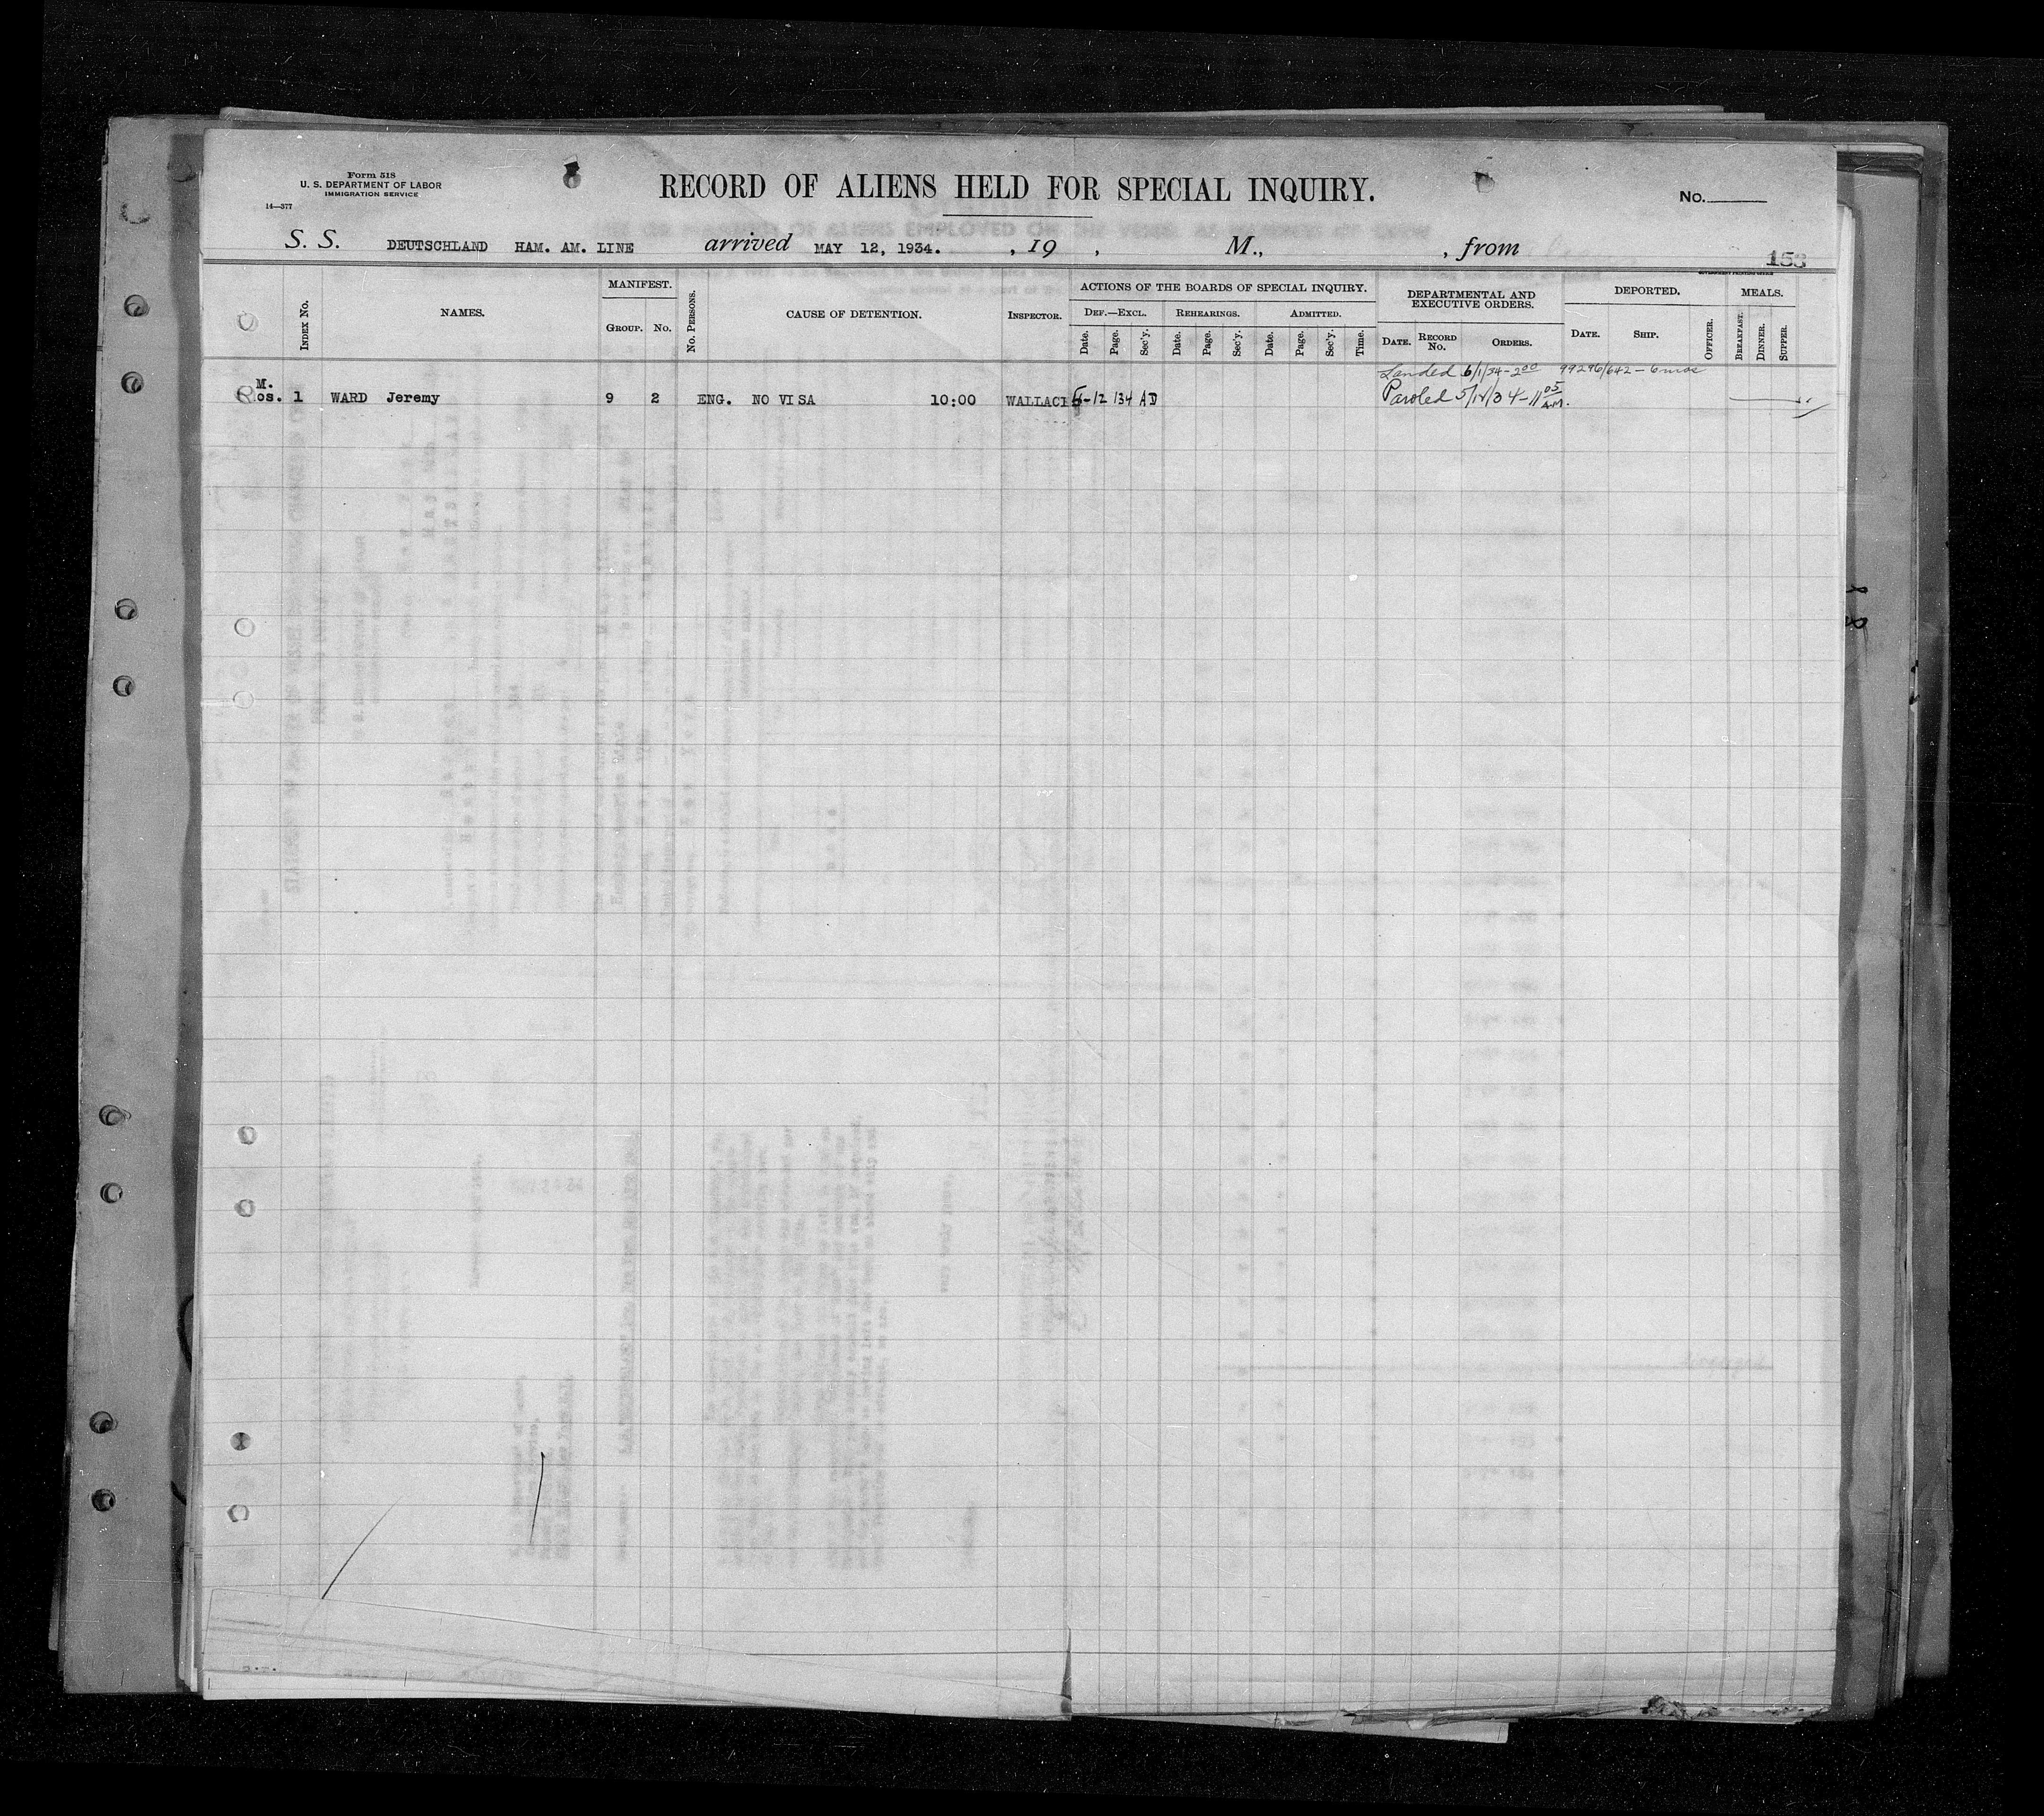 Form 518
U. S. DEPARTMENT OF LABOR
IMMIGRATION SERVICE
14—577
RECORD OF ALIENS HELD FOR SPECIAL INQUIRY.
No.
S. S. DEUTSCHLAND HAM. AM. LINE arrived MAY 12, 1934. , 19 , M., , from
153
GOVERNMENT PRINTING OFFICE
INDEX No.
NAMES.
MANIFEST.
GROUP. No.
No. PERSONS.
CAUSE OF DETENTION.
INSPECTOR.
ACTIONS OF THE BOARDS OF SPECIAL INQUIRY.
DEF.—EXCL. REHEARINGS. ADMITTED.
Date. Page. Sec'y. Date. Page. Sec'y. Date. Page. Sec'y. Time.
DEPARTMENTAL AND
EXECUTIVE ORDERS.
DATE. RECORD No. ORDERS.
DEPORTED.
DATE. SHIP. OFFICER.
MEALS.
BREAKFAST. DINNER. SUPPER.
Landed 6/1/34-2 00 99296/642-6 mos
M.
Ros. 1 WARD Jeremy 9 2 ENG. NO VISA 10:00 WALLACE 5-12 134 AD Paroled 5/12/34-11 05 A.M.